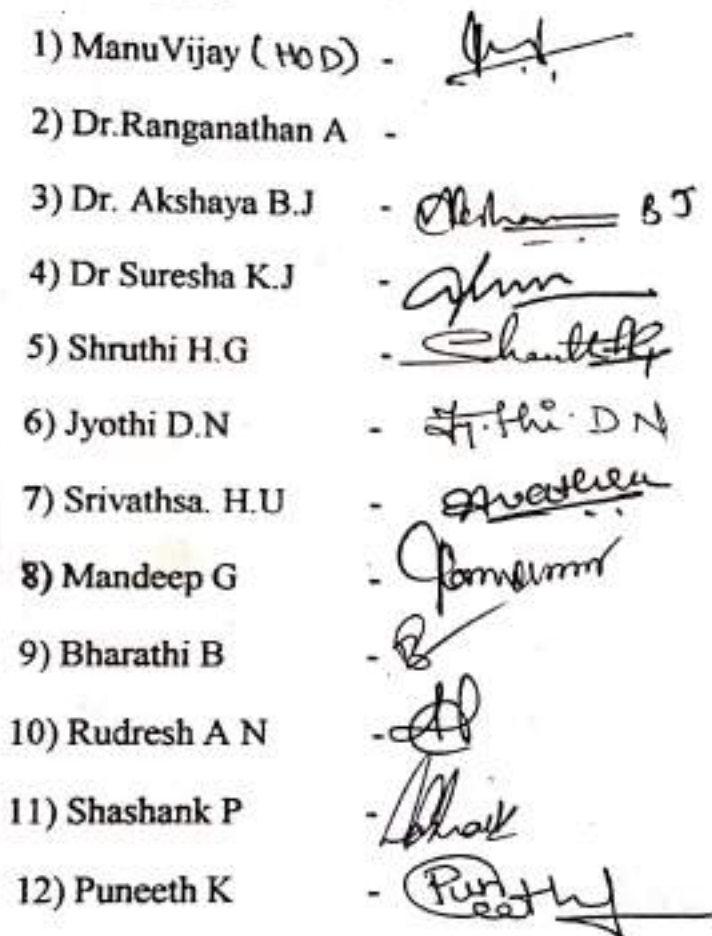 1) ManuVijay (HOD) -
2) Dr.Ranganathan A -
3) Dr. Akshaya B.J - B J
4) Dr Suresha K.J -
5) Shruthi H.G -
6) Jyothi D.N - D N
7) Srivathsa. H.U -
8) Mandeep G -
9) Bharathi B - B
10) Rudresh A N -
11) Shashank P -
12) Puneeth K - Puneeth